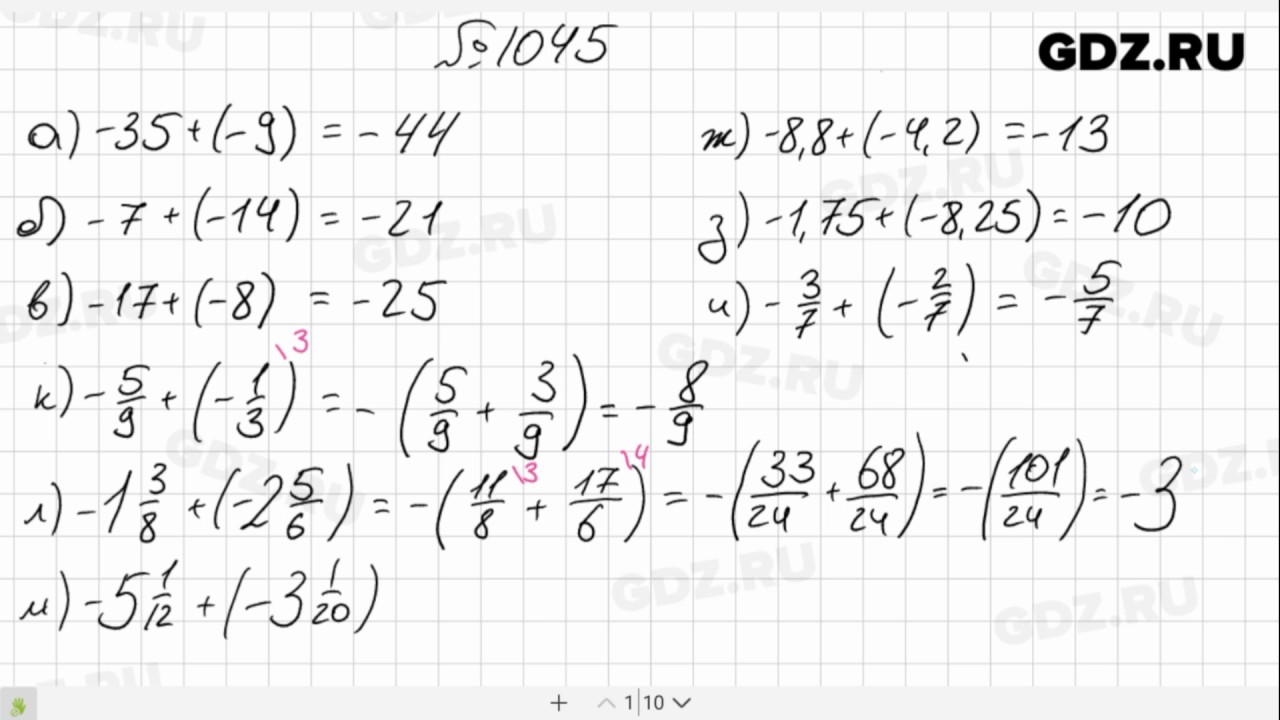 №1045
GDZ.RU
а) -35+(-9) = -44
ж) -8,8+(-4,2) = -13
б) -7+(-14) = -21
з) -1,75+(-8,25) = -10
в) -17+(-8) = -25
и) -3/7 + (-2/7) = -5/7
к) -5/9 + (-1/3)\3 = -(5/9 + 3/9) = -8/9
л) -1 3/8 + (-2 5/6) = -(11/8\3 + 17/6\4) = -(33/24 + 68/24) = -(101/24) = -3
м) -5 1/12 + (-3 1/20)
1|10